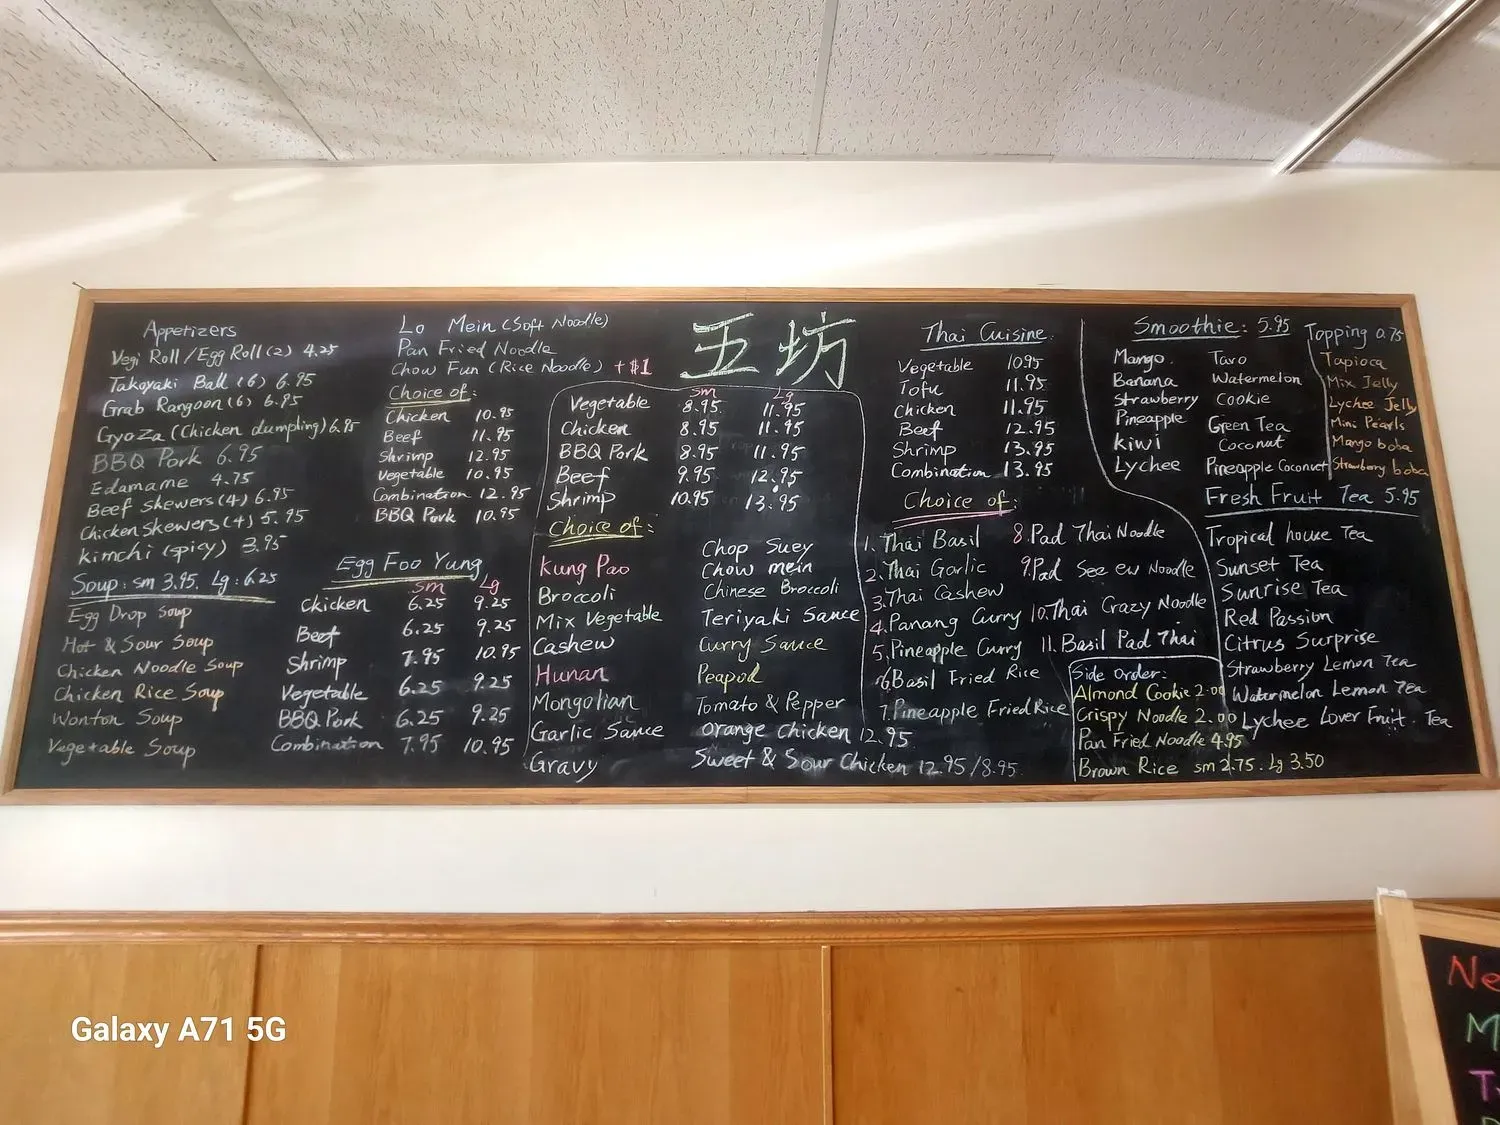 Appetizers
Vegi Roll/Egg Roll (2) 4.25
Takoyaki Ball (6) 6.95
Grab Rangoon (6) 6.95
Gyoza (Chicken dumpling) 6.95
BBQ Pork 6.95
Edamame 4.75
Beef skewers (4) 6.95
Chicken skewers (4) 5.95
Kimchi (spicy) 3.95
Soup: sm 3.95. Lg: 6.25
Egg Drop Soup
Hot & Sour Soup
Chicken Noodle Soup
Chicken Rice Soup
Wonton Soup
Vegetable Soup
Lo Mein (Soft Noodle)
Pan Fried Noodle
Chow Fun (Rice Noodle) +$1
Choice of:
Chicken 10.95
Beef 11.95
Shrimp 12.95
Vegetable 10.95
Combination 12.95
BBQ Pork 10.95
Egg Foo Yung
sm Lg
Chicken 6.25 9.25
Beef 6.25 9.25
Shrimp 7.95 10.95
Vegetable 6.25 9.25
BBQ Pork 6.25 9.25
Combination 7.95 10.95
五坊
sm Lg
Vegetable 8.95 11.95
Chicken 8.95 11.95
BBQ Pork 8.95 11.95
Beef 9.95 12.95
Shrimp 10.95 13.95
Choice of:
Kung Pao
Broccoli
Mix Vegetable
Cashew
Hunan
Mongolian
Garlic Sauce
Gravy
Chop Suey
Chow mein
Chinese Broccoli
Teriyaki Sauce
Curry Sauce
Peapod
Tomato & Pepper
Orange Chicken 12.95
Sweet & Sour Chicken 12.95/8.95
Thai Cuisine:
Vegetable 10.95
Tofu 11.95
Chicken 11.95
Beef 12.95
Shrimp 13.95
Combination 13.95
Choice of:
1. Thai Basil
2. Thai Garlic
3. Thai Cashew
4. Panang Curry
5. Pineapple Curry
6. Basil Fried Rice
7. Pineapple Fried Rice
8. Pad Thai Noodle
9. Pad See ew Noodle
10. Thai Crazy Noodle
11. Basil Pad Thai
Side Order:
Almond Cookie 2.00
Crispy Noodle 2.00
Pan Fried Noodle 4.95
Brown Rice sm 2.75. Lg 3.50
Smoothie: 5.95
Mango
Banana
Strawberry
Pineapple
Kiwi
Lychee
Taro
Watermelon
Cookie
Green Tea
Coconut
Pineapple Coconut
Topping 0.75
Tapioca
Mix Jelly
Lychee Jelly
Mini Pearls
Mango boba
Strawberry boba
Fresh Fruit Tea 5.95
Tropical house Tea
Sunset Tea
Sunrise Tea
Red Passion
Citrus Surprise
Strawberry Lemon Tea
Watermelon Lemon Tea
Lychee Lover Fruit. Tea
Ne
M
T
Galaxy A71 5G